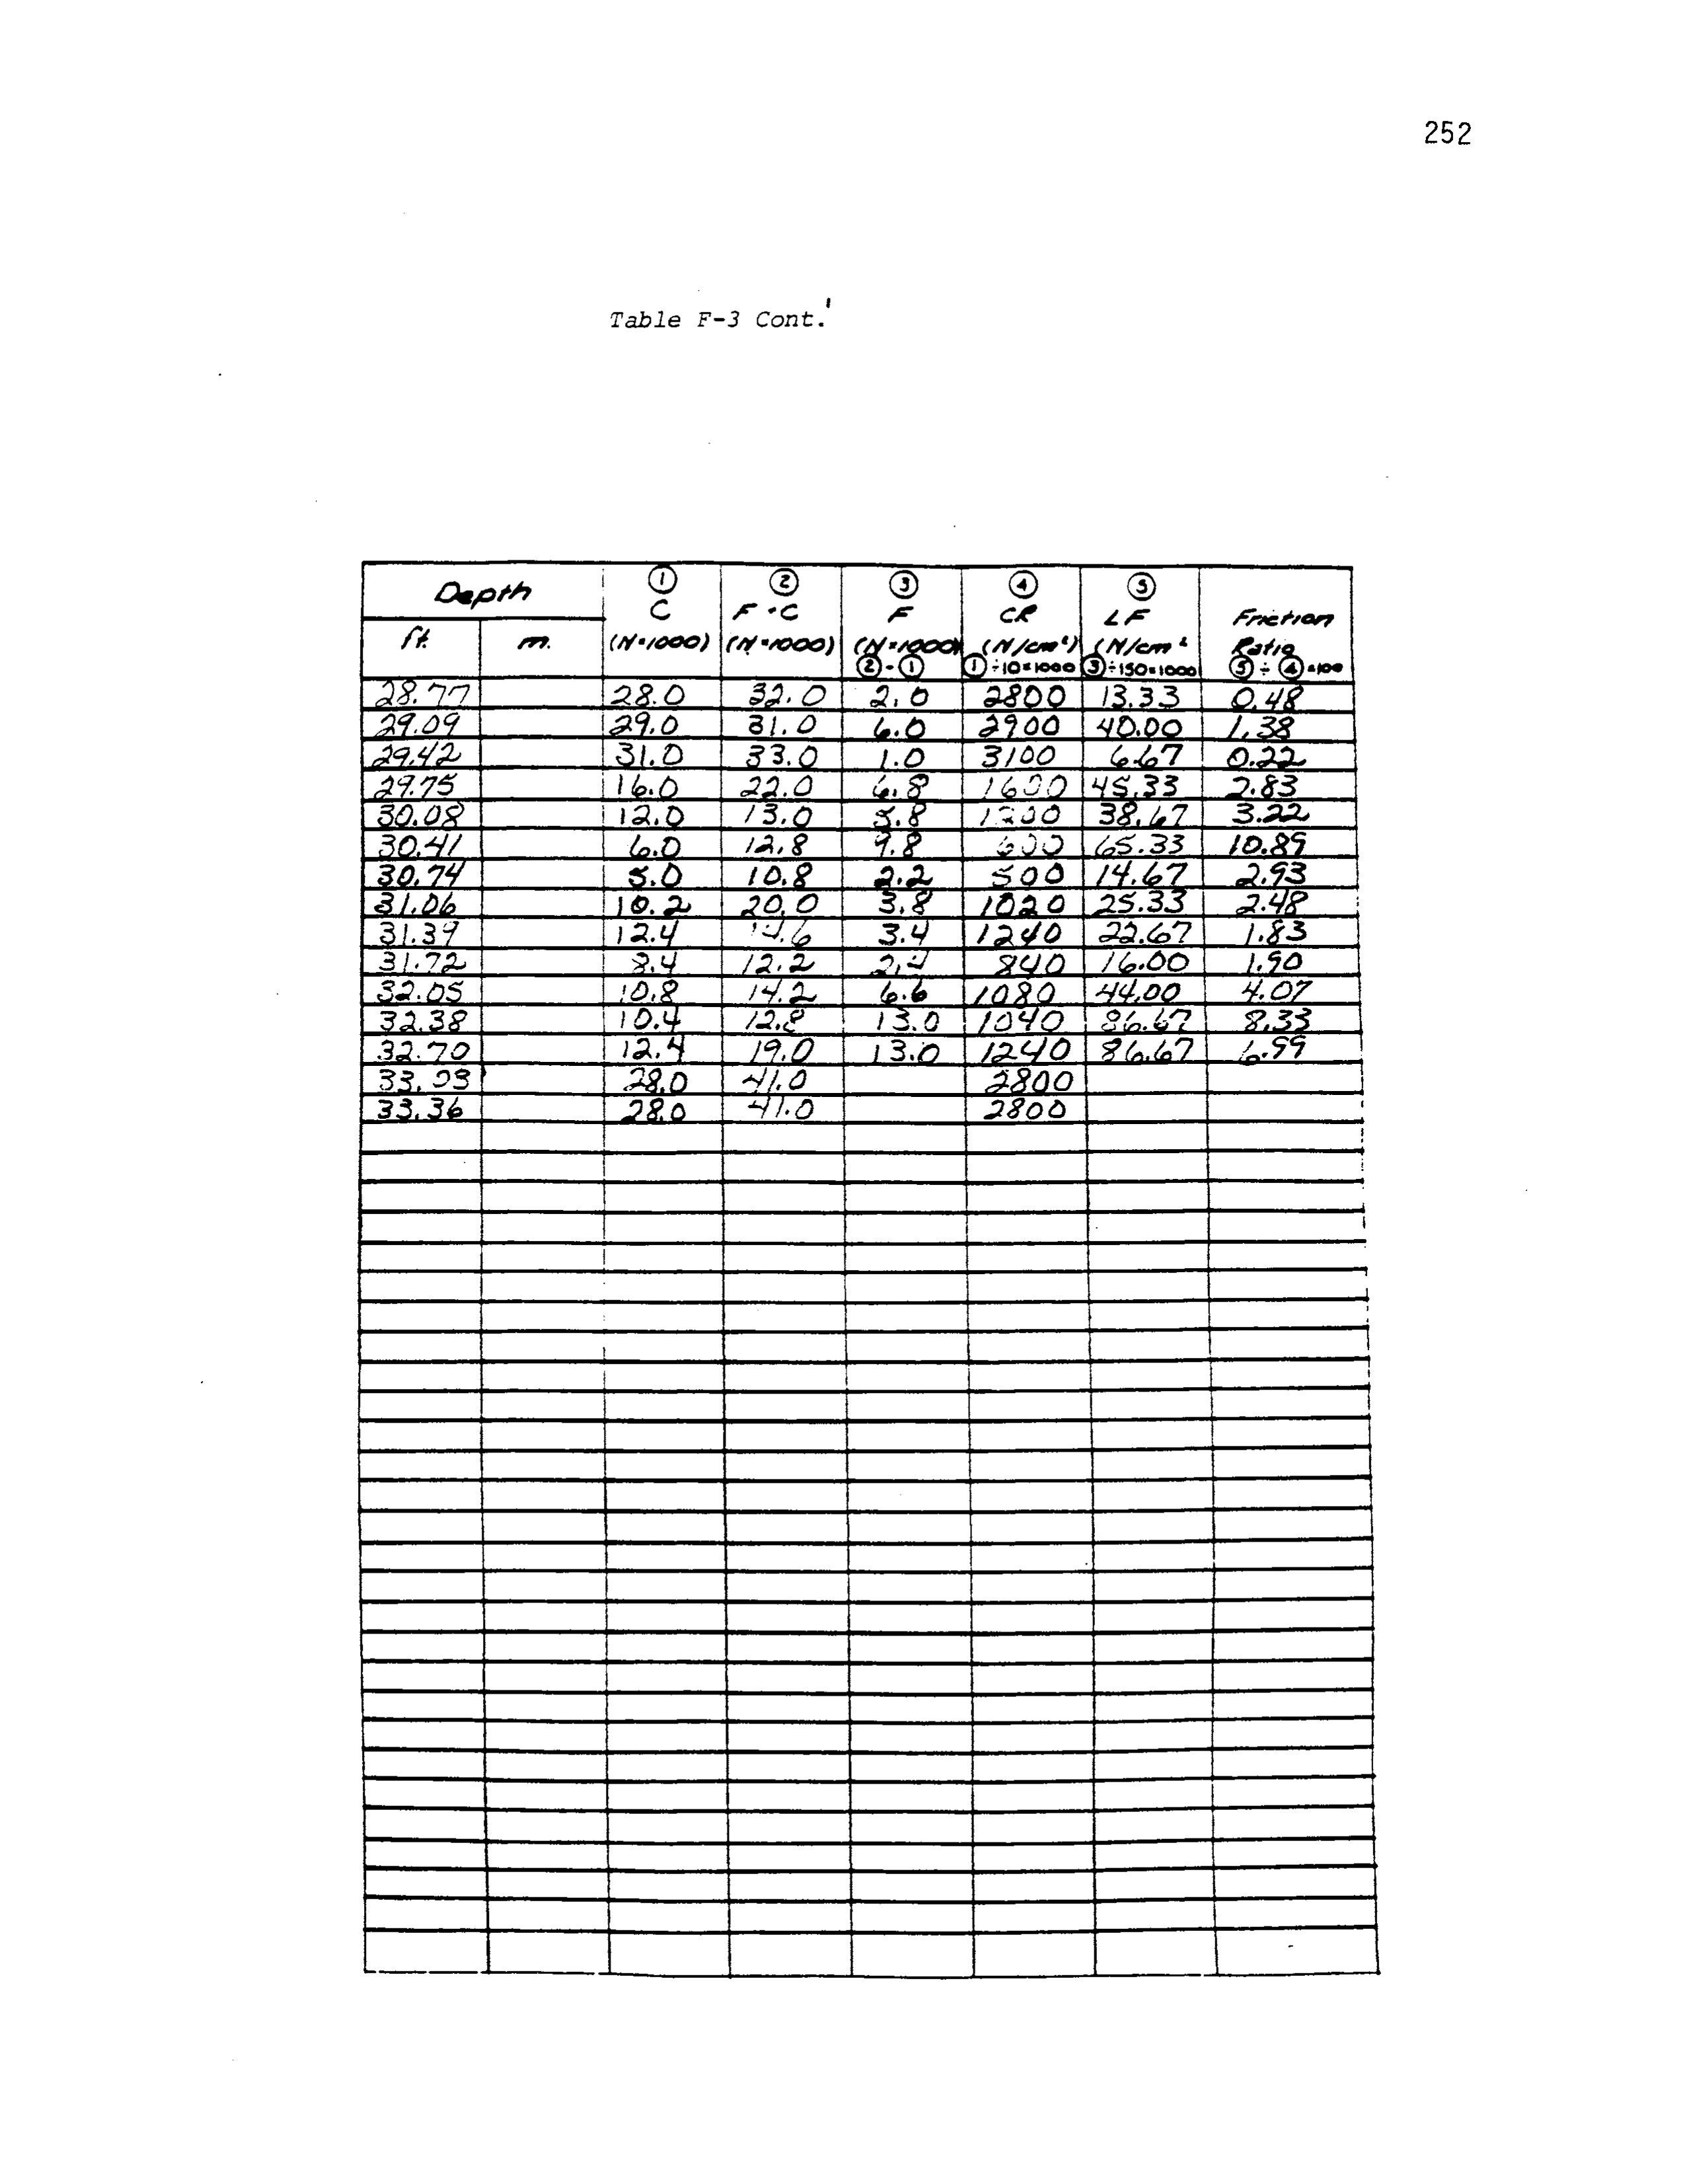 252
Table F-3 Cont.'
Depth ① ② ③ ④ ⑤
C F+C F CR LF Friction
ft. m. (N×1000) (N×1000) (N×1000) (N/cm²) (N/cm² Ratio
②-① ①÷10×1000 ③÷150×1000 ⑤÷④×100
28.77 28.0 32.0 2.0 2800 13.33 0.48
29.09 29.0 31.0 6.0 2900 40.00 1.38
29.42 31.0 33.0 1.0 3100 6.67 0.22
29.75 16.0 22.0 6.8 1600 45.33 2.83
30.08 12.0 13.0 5.8 1200 38.67 3.22
30.41 6.0 12.8 9.8 600 65.33 10.89
30.74 5.0 10.8 2.2 500 14.67 2.93
31.06 10.2 20.0 3.8 1020 25.33 2.48
31.39 12.4 14.6 3.4 1240 22.67 1.83
31.72 8.4 12.2 2.4 840 16.00 1.90
32.05 10.8 14.2 6.6 1080 44.00 4.07
32.38 10.4 12.8 13.0 1040 86.67 8.33
32.70 12.4 19.0 13.0 1240 86.67 6.99
33.03 28.0 41.0 2800
33.36 28.0 41.0 2800